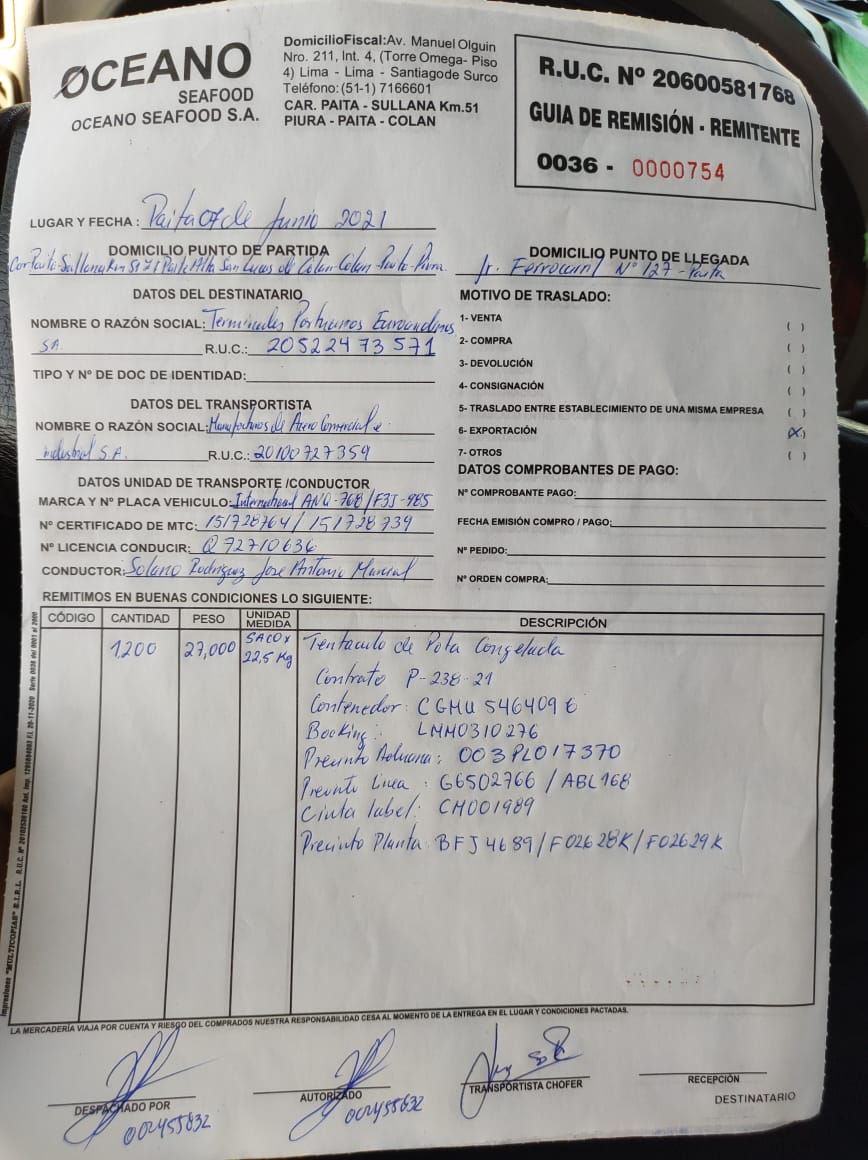 OCEANO
SEAFOOD
OCEANO SEAFOOD S.A.
DomicilioFiscal:Av. Manuel Olguin
Nro. 211, Int. 4, (Torre Omega- Piso
4) Lima - Lima - Santiagode Surco
Teléfono:(51-1) 7166601
CAR. PAITA - SULLANA Km.51
PIURA - PAITA - COLAN
R.U.C. Nº 20600581768
GUIA DE REMISIÓN - REMITENTE
0036 - 0000754
LUGAR Y FECHA : Paita 07 de Junio 2021
DOMICILIO PUNTO DE PARTIDA
Car Paita-Sullana Km 51 Parte Alta San Lucas de Colan-Colan-Paita-Piura.
DOMICILIO PUNTO DE LLEGADA
Jr. Ferrocarril Nº 127 - Paita
DATOS DEL DESTINATARIO
NOMBRE O RAZÓN SOCIAL: Terminales Portuarios Euroandinos
SA. R.U.C.: 20522473571
TIPO Y Nº DE DOC DE IDENTIDAD:
DATOS DEL TRANSPORTISTA
NOMBRE O RAZÓN SOCIAL: Manufacturas de Acero Comercial e
industrial S.A. R.U.C.: 20100727359
DATOS UNIDAD DE TRANSPORTE /CONDUCTOR
MARCA Y Nº PLACA VEHICULO: International ANQ-768/F3J-985
Nº CERTIFICADO DE MTC: 151728764 / 151728739
Nº LICENCIA CONDUCIR: Q72710636
CONDUCTOR: Solano Rodriguez Jose Antonio Manuel
MOTIVO DE TRASLADO:
1- VENTA ( )
2- COMPRA ( )
3- DEVOLUCIÓN ( )
4- CONSIGNACIÓN ( )
5- TRASLADO ENTRE ESTABLECIMIENTO DE UNA MISMA EMPRESA ( )
6- EXPORTACIÓN (X)
7- OTROS ( )
DATOS COMPROBANTES DE PAGO:
Nº COMPROBANTE PAGO:
FECHA EMISIÓN COMPRO / PAGO:
Nº PEDIDO:
Nº ORDEN COMPRA:
REMITIMOS EN BUENAS CONDICIONES LO SIGUIENTE:
CÓDIGO CANTIDAD PESO UNIDAD MEDIDA DESCRIPCIÓN
1,200 27,000 SACO x 22,5 Kg Tentaculo de Pota Congelada
Contrato P-238-21
Contenedor: CGMU 546409 6
Booking: LMM0310276
Precinto Aduana: 003PL017370
Precinto Linea : G6502766 / ABL168
Cinta label: CM001989
Precinto Planta: BFJ4689/F02628K/F02629K
LA MERCADERÍA VIAJA POR CUENTA Y RIESGO DEL COMPRADOS NUESTRA RESPONSABILIDAD CESA AL MOMENTO DE LA ENTREGA EN EL LUGAR Y CONDICIONES PACTADAS.
DESPACHADO POR
002455832
AUTORIZADO
002455832
TRANSPORTISTA CHOFER
RECEPCIÓN
DESTINATARIO